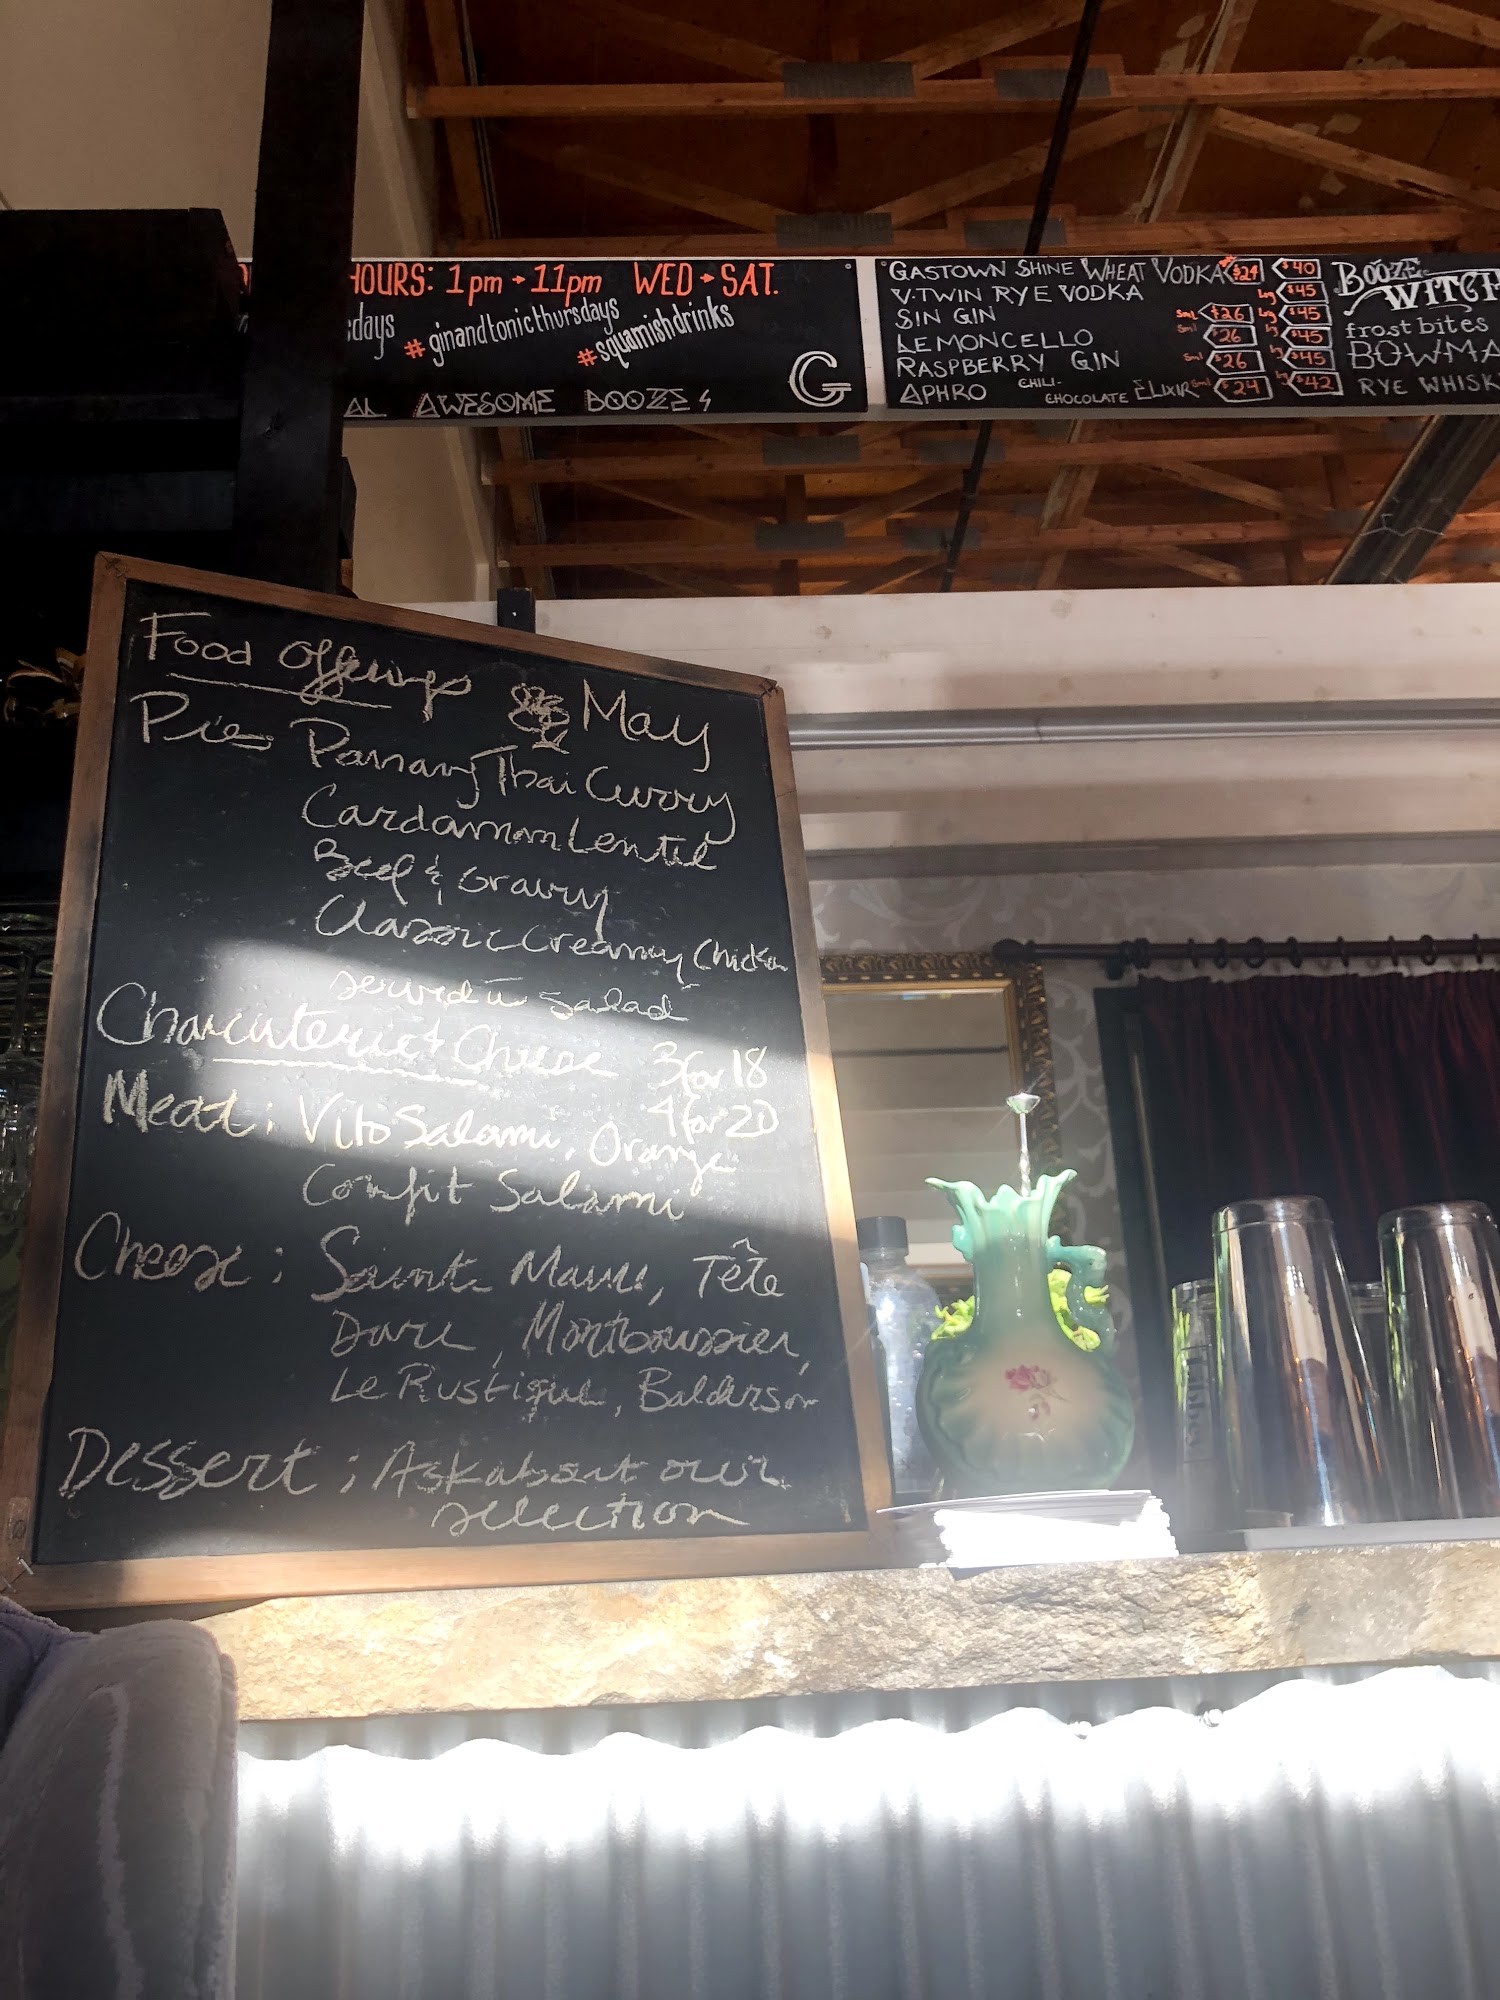 HOURS: 1pm → 11pm WED → SAT.
days #ginandtonicthursdays
#squamishdrinks
AWESOME BOOZE
G
GASTOWN SHINE WHEAT VODKA $24 $40
V.TWIN RYE VODKA lg $45
SIN GIN sml $26 lg $45
LEMONCELLO sml $26 lg $45
RASPBERRY GIN sml $26 lg $45
APHRO CHILI-CHOCOLATE ELIXIR sml $24 lg $42
BOOZE
WITCH
frost bites
RYE WHISK
Food Offerings May
Pies Panang Thai Curry
Cardamom Lentil
Beef & Gravy
Classic Creamy Chicken
served w salad
Charcuterie & Cheese 3 for 18
4 for 20
Meat: Vito Salami, Orange
Confit Salami
Cheese: Saint Maure, Tête
Dure, Montboussier,
Le Rustique, Balderson
Dessert: Ask about our
selection